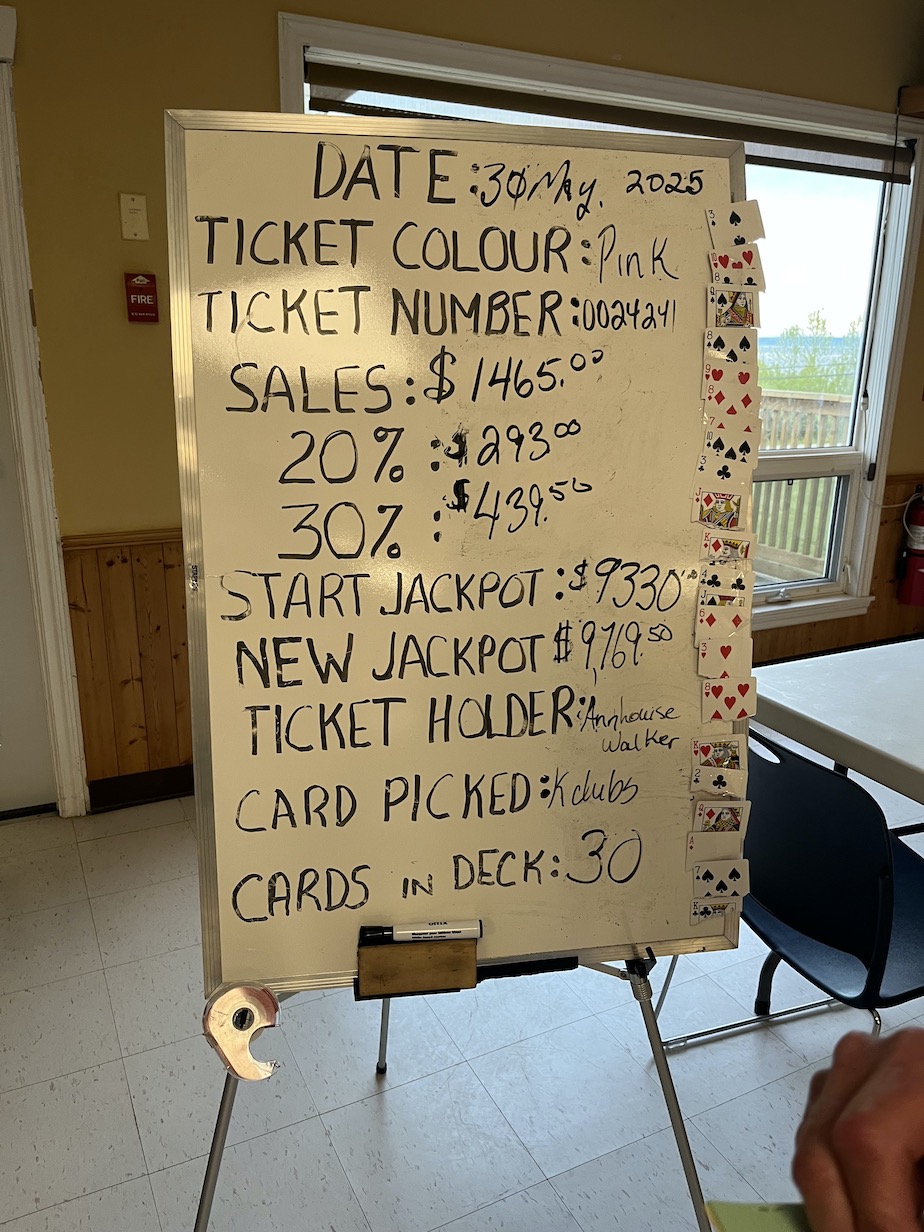 DATE: 30 May, 2025
TICKET COLOUR: Pink
TICKET NUMBER: 0024241
SALES: $1465.00
20% : $293.00
30% : $439.50
START JACKPOT: $9330.00
NEW JACKPOT $9,769.50
TICKET HOLDER: Annhouise
Walker
CARD PICKED: K clubs
CARDS IN DECK: 30
FIRE
3
10
8
Q
8
9
8
7
10
3
J
K
4
J
6
3
8
K
2
Q
A
7
K